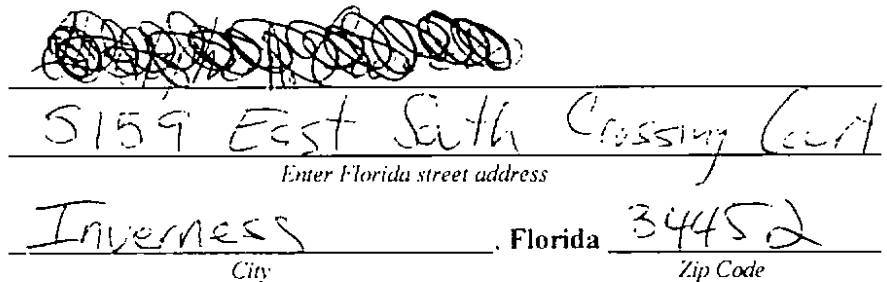 5159 East South Crossing Court
Enter Florida street address
Inverness, Florida 34452
City Zip Code